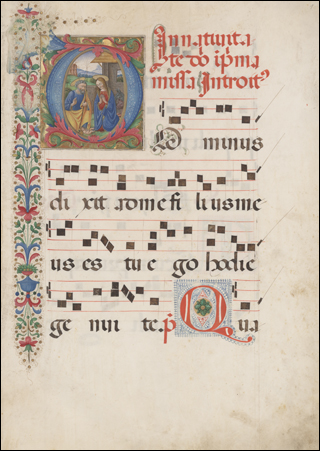 In natiuita
te dō ip̄ma
missa Introit⁹
Do minus
di xit ad me fi li us me
us es tu e go hodie
ge nui te. p̄s Qua